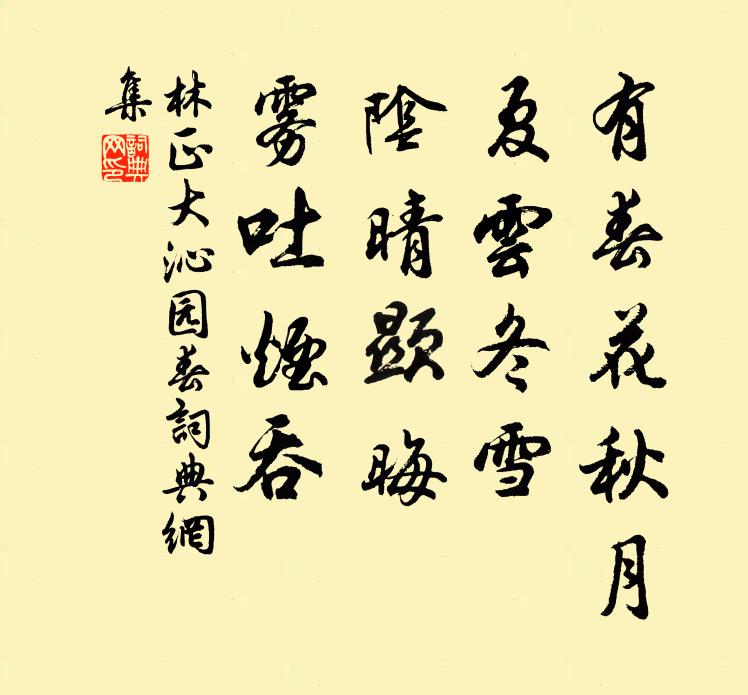 有春花秋月
夏雲冬雪
陰晴顯晦
雾吐煙吞
林正大沁园春詞典網
集
詞典
网印